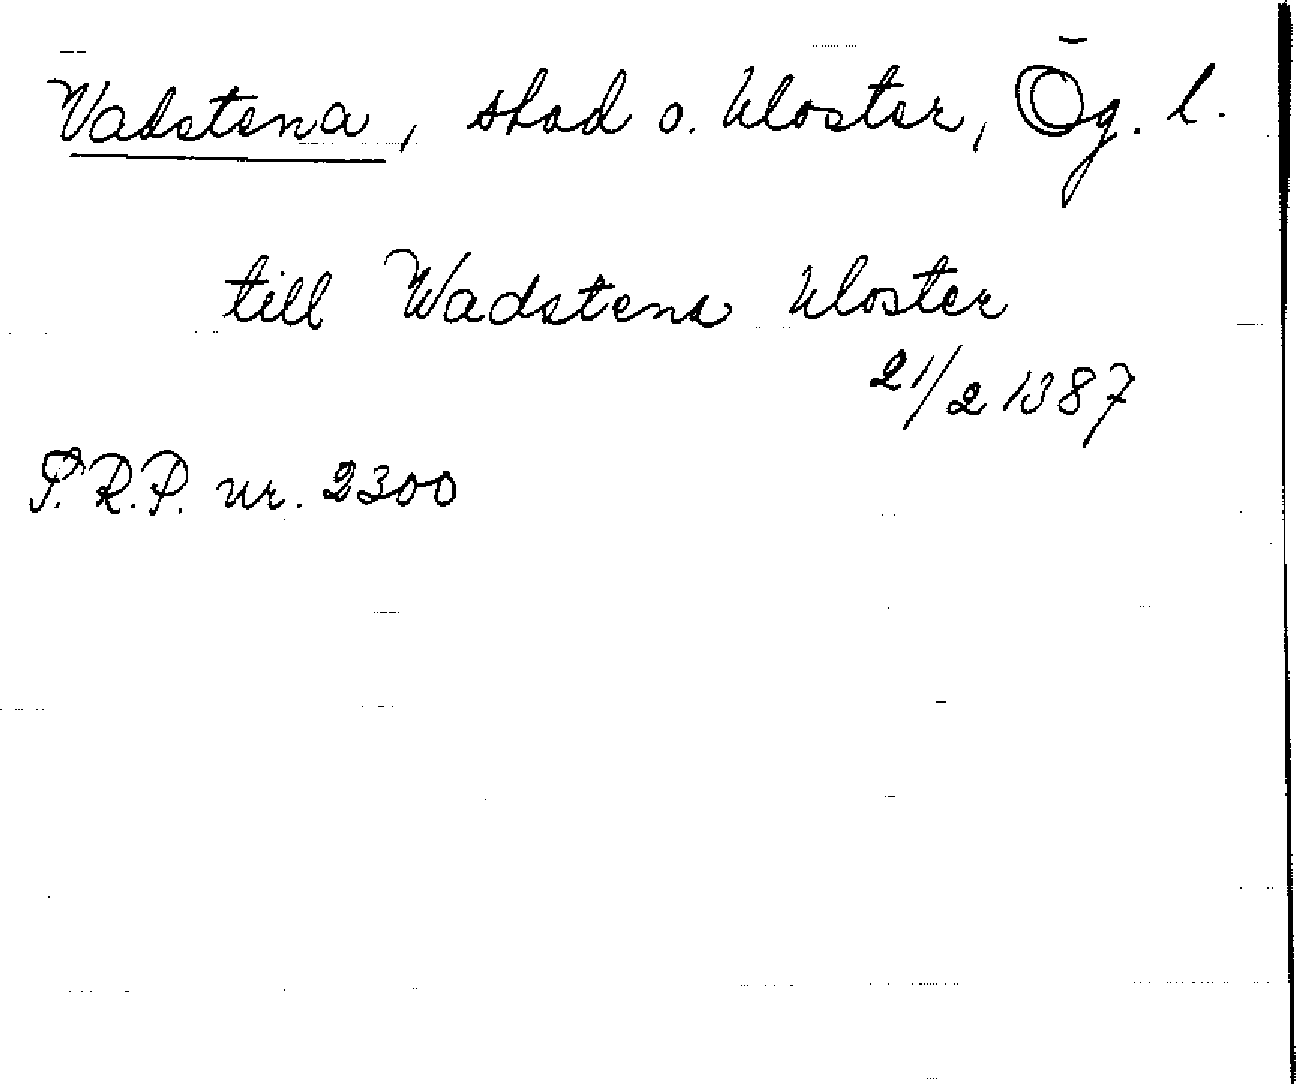 Vadstena, stad o. kloster, Ög. l.
till Wadstena kloster
21/2 1387
P.R.P. nr. 2300